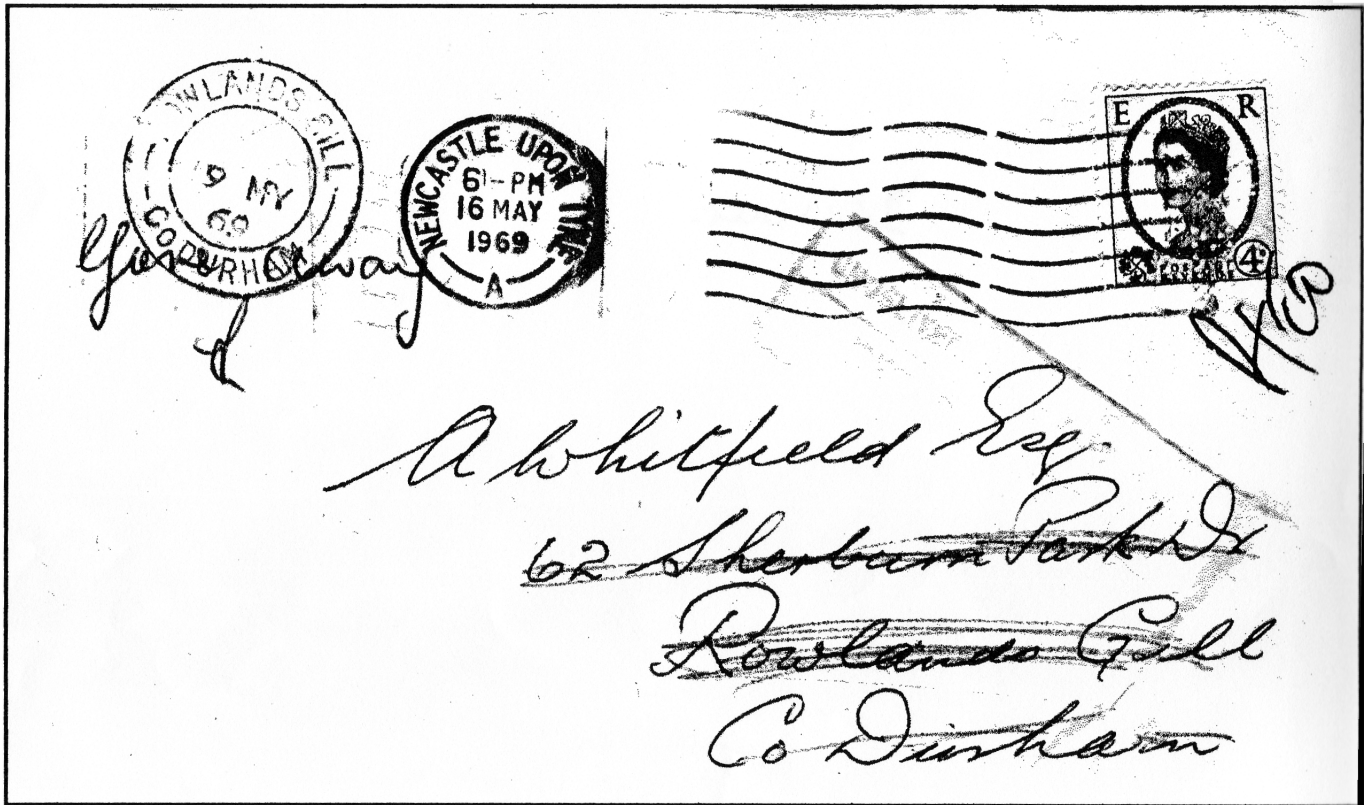 ROWLANDS GILL
9 MY
69
CO DURHAM
NEWCASTLE UPON TYNE
6 - PM
16 MAY
1969
A
E R
POSTAGE
REVENUE
4D
Gone Away
A Whitfield Esq
62 Sherburn Park Dr
Rowlands Gill
Co Durham